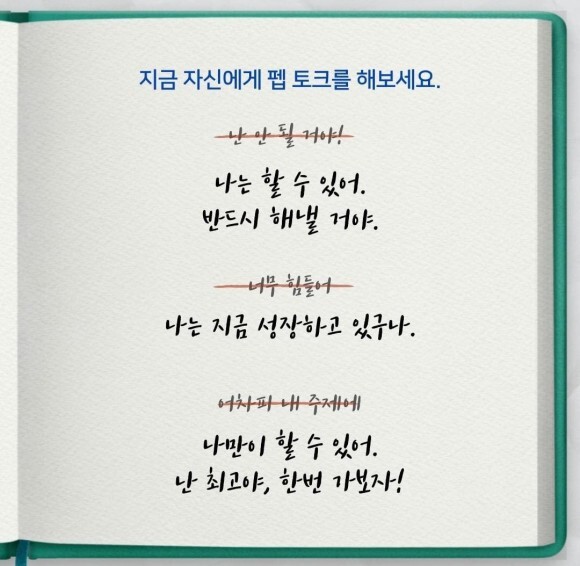 지금 자신에게 펩 토크를 해보세요.
난 안 될 거야!
나는 할 수 있어.
반드시 해낼 거야.
너무 힘들어
나는 지금 성장하고 있구나.
어차피 내 주제에
나만이 할 수 있어.
난 최고야, 한번 가보자!